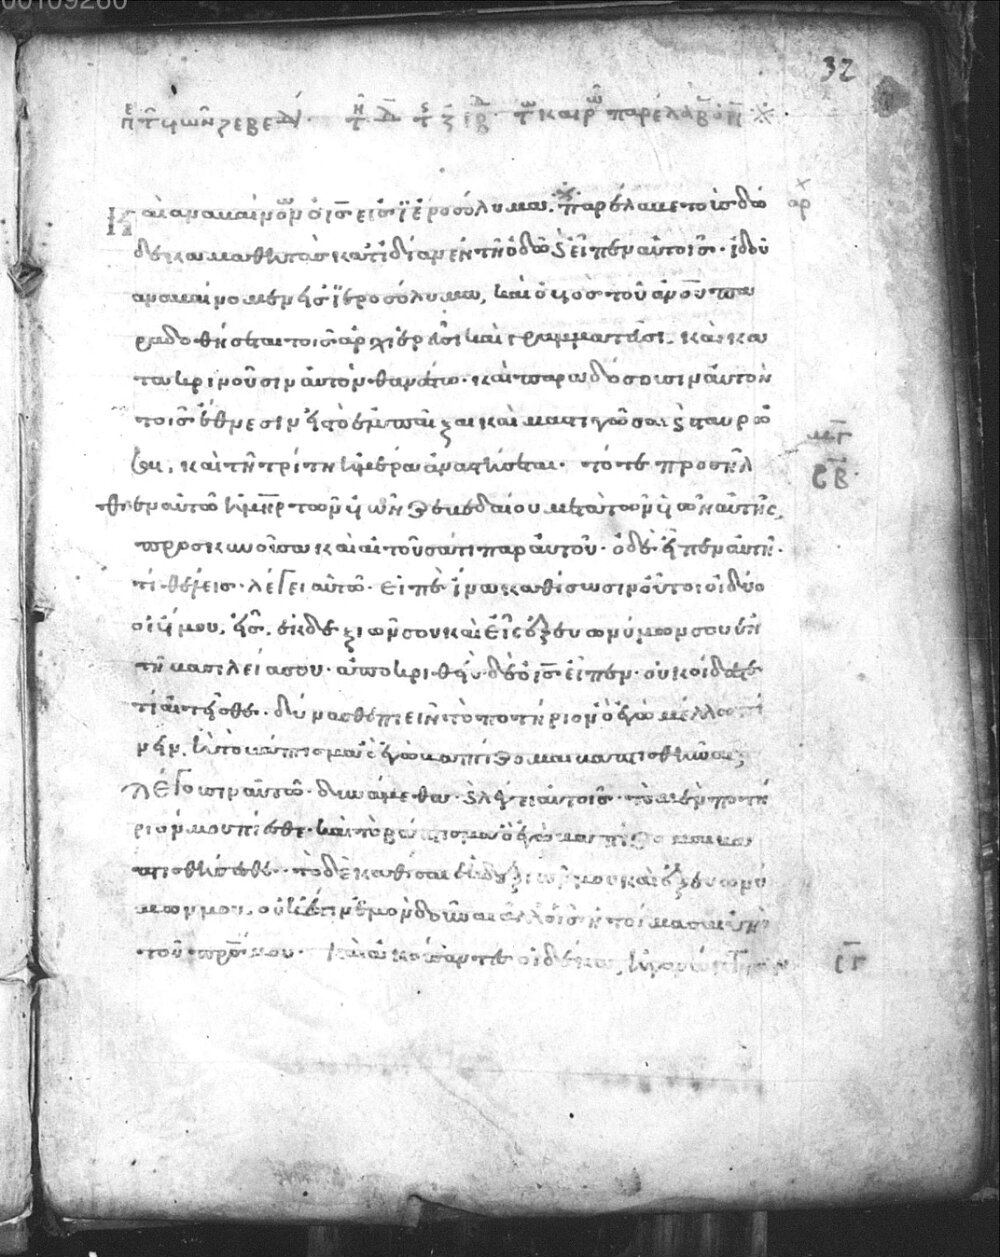 32
Καὶ ἀναβαίνων ὁ ις εἰς ἱεροσόλυμα. παρέλαβε τοὺς δώ
αρ
δεκα μαθητὰς κατιδίαν ἐν τῆ ὁδῶ καὶ εἶπεν αὐτοῖς· ἰδοὺ
ἀναβαίνομεν εἰς ἱεροσόλυμα, καὶ ὁ υἱος τοῦ ανου πα
ραδοθήσεται τοῖς ἀρχιερεῦσι καὶ γραμματεῦσι. καὶ κα
τακρινοῦσιν αὐτὸν θανάτω· καὶ παραδώσουσιν αὐτὸν
τοῖς ἔθνεσιν εἰς τὸ ἐμπαῖξαι καὶ μαστιγῶσαι καὶ σταυρῶ
σαι, καὶ τῆ τρίτη ἡμέρα ἀναστήσεται· τότε προσῆλ
μγ
σβ
θεν αὐτῶ ἡ μηρ τῶν υἱῶν ζεβεδαίου μετὰ τῶν υἱῶν αὐτῆς,
προσκυνοῦσα καὶ αἰτοῦσά τι παρ αὐτοῦ· ὁ δὲ εἶπεν αὐτῆ·
τί θέλεις· λέγει αὐτῶ· εἰπὲ ἵνα καθίσωσιν οὗτοι οἱ δύο
οἱ υἱοί μου, εἷς ἐκ δεξιῶν σου καὶ εἷς ἐξ εὐωνύμων σου ἐν
τῆ βασιλεία σου· ἀποκριθεὶς δὲ ὁ ις εἶπεν· οὐκ οἴδατε
τί αἰτεῖσθε· δύνασθε πιεῖν τὸ ποτήριον ὃ ἐγὼ μέλλω πί
νειν, ἢ τὸ βάπτισμα ὃ ἐγὼ βαπτίζομαι βαπτισθῆναι;
λέγουσιν αὐτῶ· δυνάμεθα· καὶ λέγει αὐτοῖς· τὸ μὲν ποτή
ριόν μου πίεσθε· καὶ τὸ βάπτισμα ὃ ἐγὼ βαπτίζομαι βα
πτισθήσεσθε· τὸ δὲ καθίσαι ἐκ δεξιῶν μου καὶ ἐξ εὐωνύ
μων μου, οὐκ ἔστιν ἐμὸν δοῦναι ἀλλ οἷς ἡτοίμασται ὑπὸ
τοῦ προς μου· καὶ ἀκούσαντες οἱ δέκα,
σγ